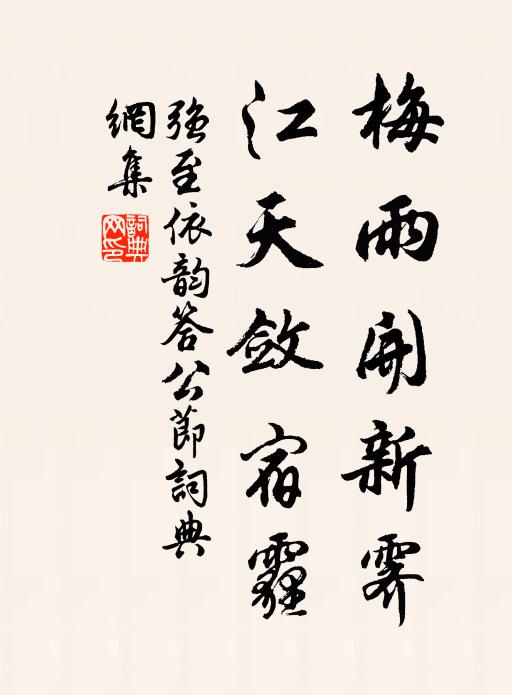 梅雨開新霽
江天斂宿霾
強至依韵答公節詞典
網集
詞典
網印